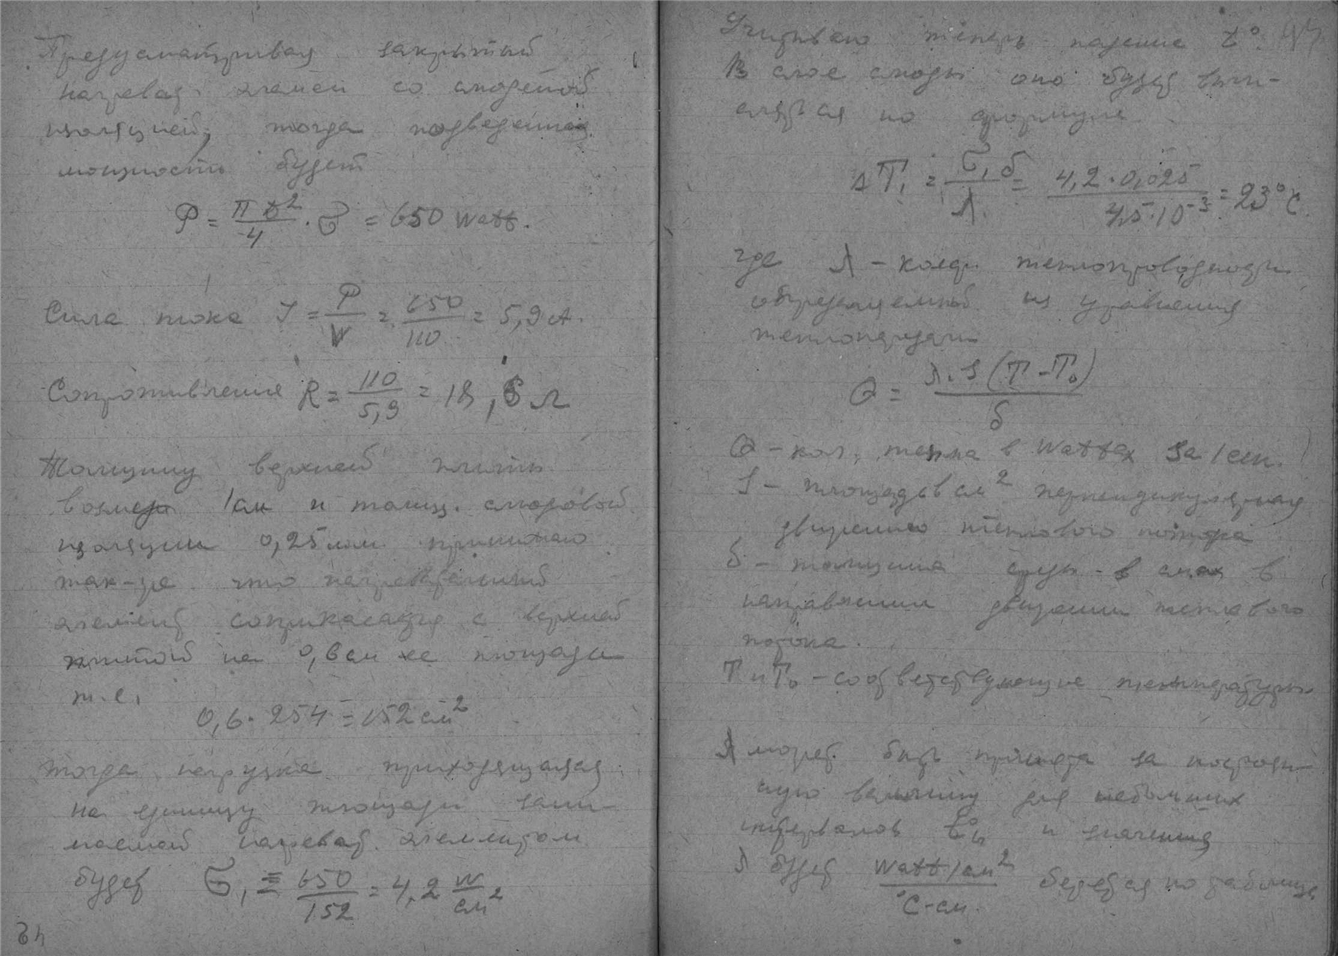 Предусматривая закрытый
нагреват. элемен со слюдяной
изоляцией, тогда подведенная
мощность будет
P = π d² / 4 · σ = 650 Watt.
Сила тока J = P / V = 650 / 110 = 5,9 A.
Сопротивление R = 110 / 5,9 = 18,6 Ω
Толщину верхней плиты
возмем 1 см и толщ. слюдовой
изоляции 0,25 мм принимаю
так-же что нагревательный
элемент соприкасается с верхней
плитой на 0,6 см ее площади
т.е.
0,6 · 254 = 152 см²
тогда нагрузка приходящаяся
на единицу площади зани-
маемой нагреват. элементом
будет σ₁ = 650 / 152 = 4,2 W / см²
34
Учитываю теперь падение t°.
В слое слюды оно будет вычи-
сляться по формуле
ΔT₁ = σ₁ δ / λ = 4,2 · 0,025 / 45·10⁻³ = 23°C
где λ - коэф. теплопроводности
определяемой из уравнения
теплопередачи
Q = λ · S (T - T₀) / δ
Q - кол. тепла в Wattах за 1 сек.
S - площадь в см² перпендикулярная
движению теплового потока
δ - толщина среды - в смах в
направлении движении теплового
потока.
T и T₀ - соответствующие температуры
λ может быть принята за постоян-
ную величину для небольших
интервалов t° и значения
λ будет Watt/см² / °C-см берется по таблице